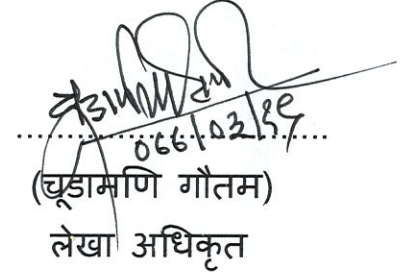 ०६६/०३/१९
(चूडामणि गौतम)
लेखा अधिकृत